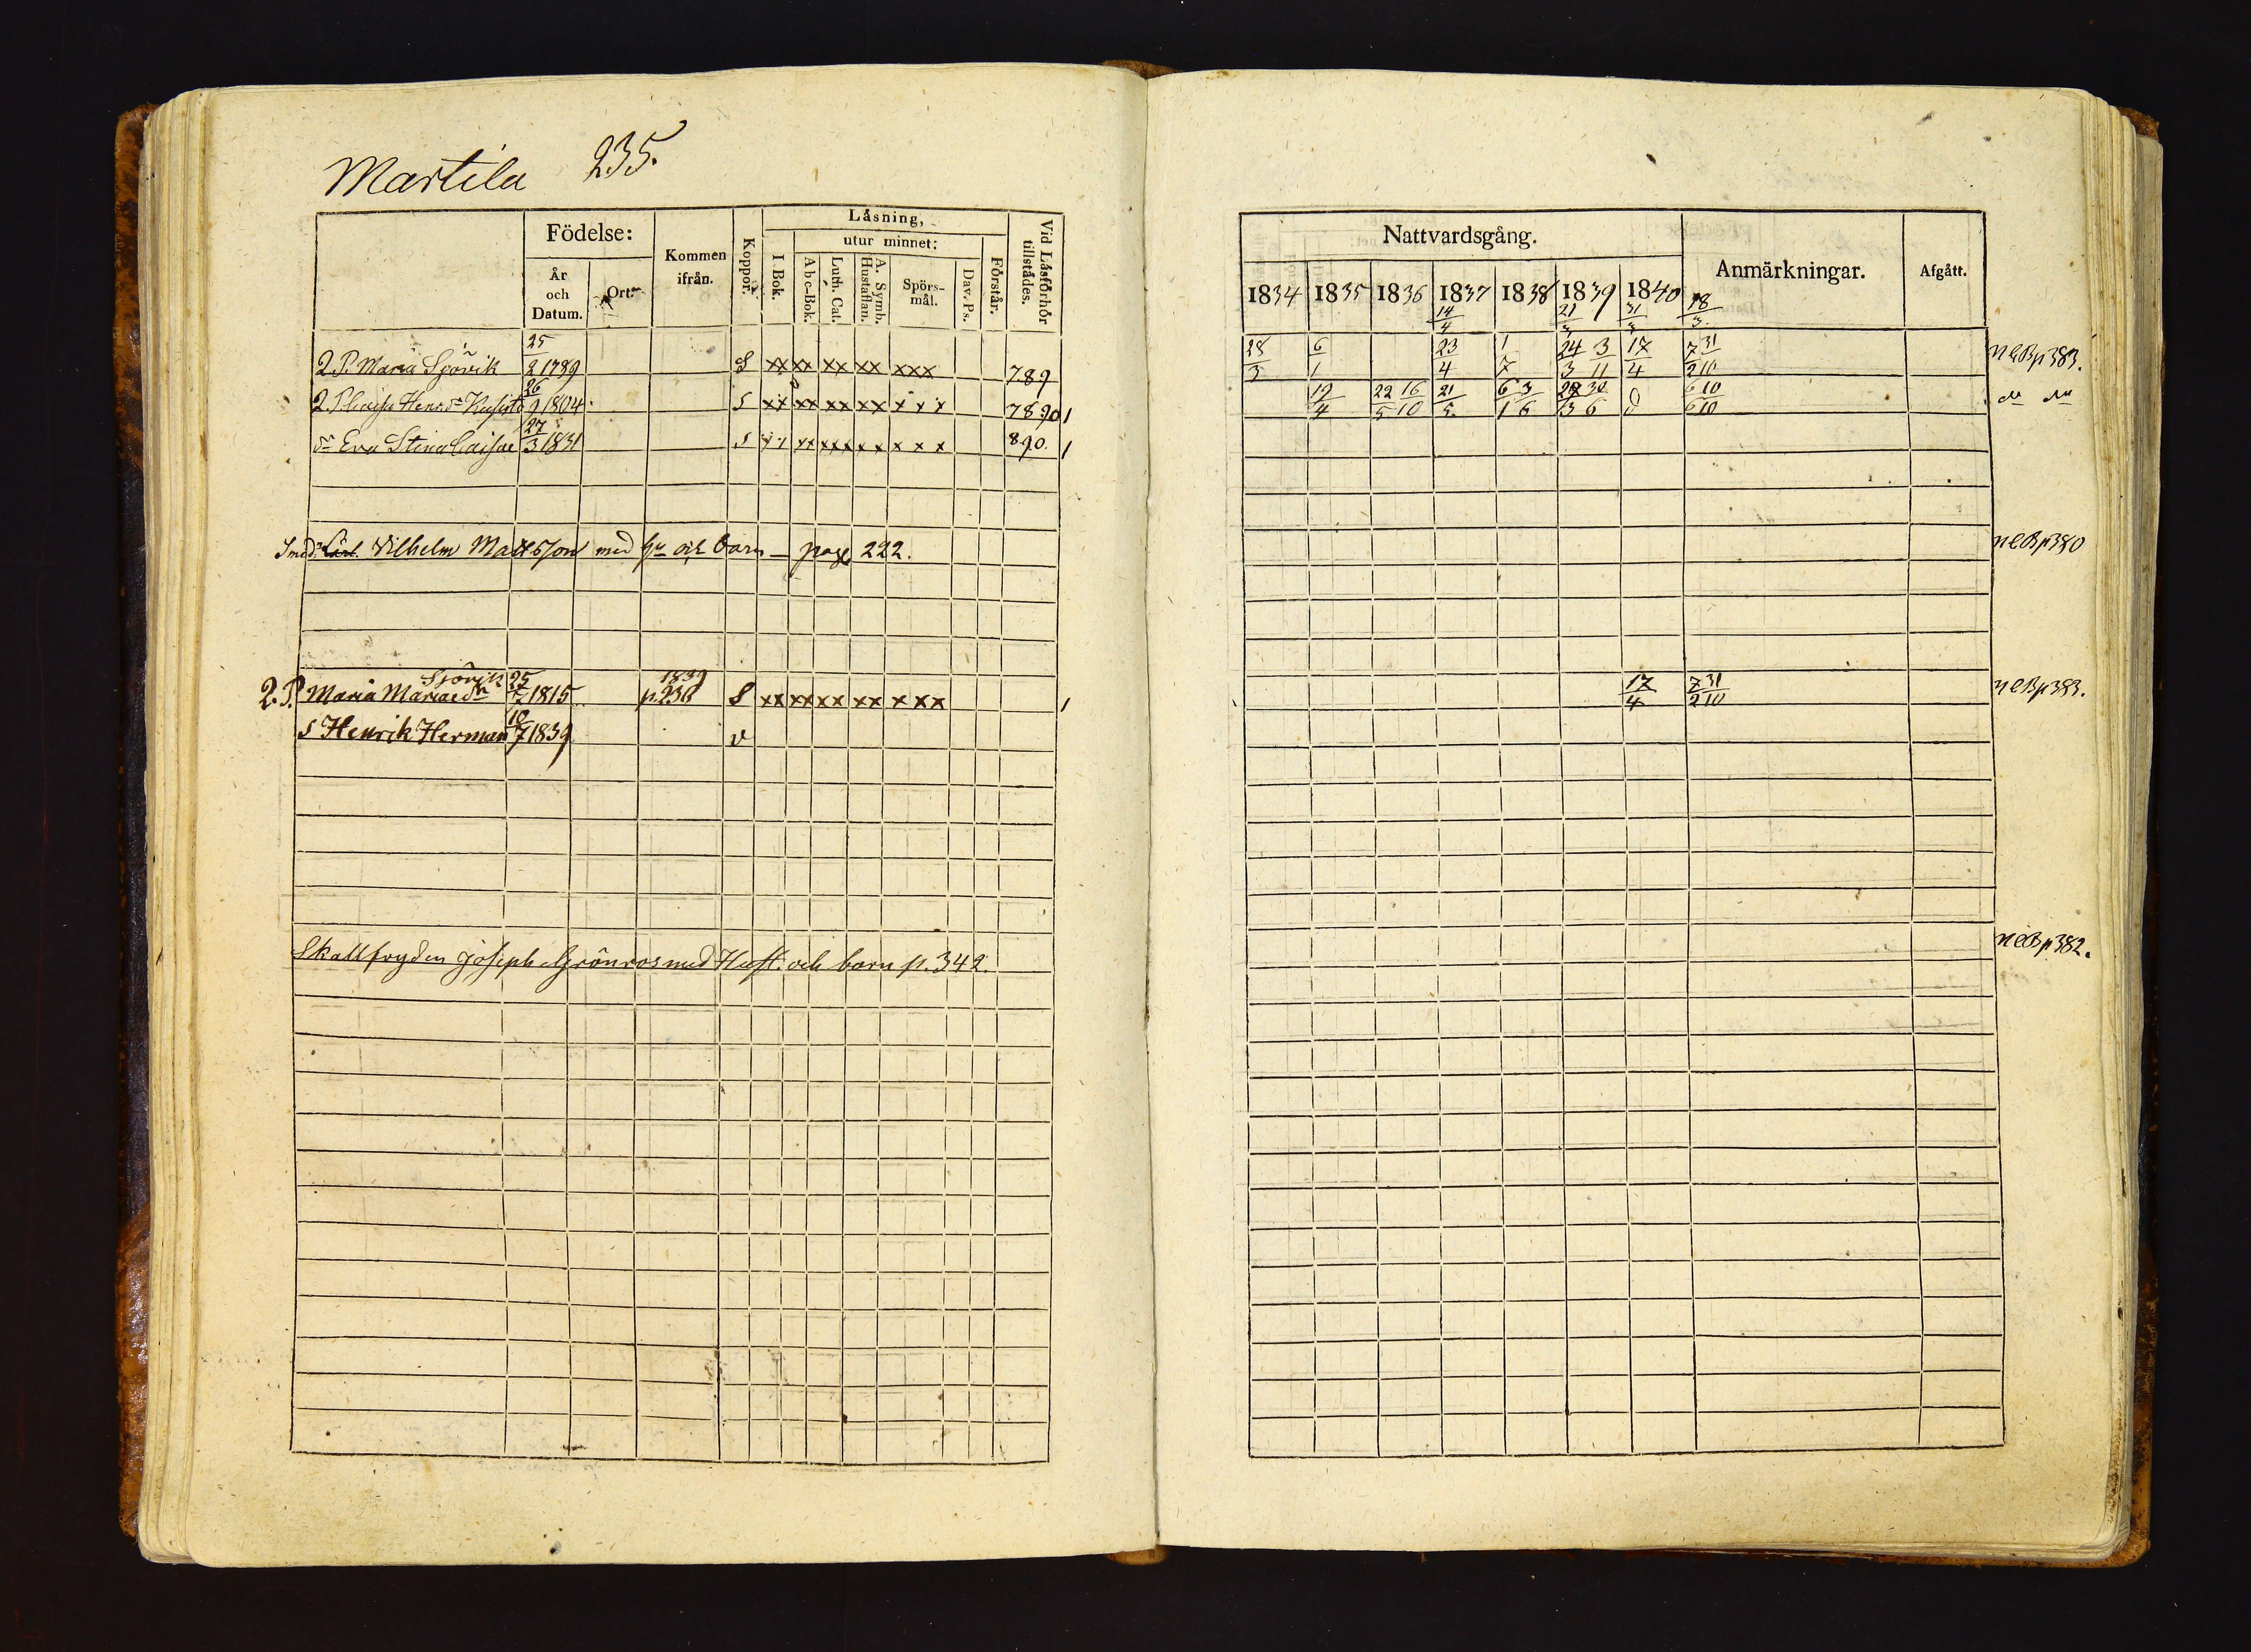 Martila 235.
Födelse: Kommen ifrån. Koppor. Läsning, Vid Läsförhör tillstådes.
År och Datum. Ort. I Bok. utur minnet: Förstår.
A b c-Bok. Luth. Cat. A. Symb. Hustaflan. Spörs-mål. Dav. Ps.
Q.P. Maria Sjövik 25/8 1789 S xx xx xx xx xxx 789
Q.P. Caisa Henr.dr 26/9 1804 S xx xx xx xx x x x 7890 1
dr Eva Stina Caisae 27/3 1831 S xx xx xxx xx x x x 890. 1
Smed. Carl Vilhelm Mattsson med hu och barn — page 222.
Sjövik 1839
Q.P. Maria Mariaedr 25/7 1815 p.236 S xx xx xx xx x xx 1
S Henrik Herman 18/7 1839 v
Skallfogden Joseph Grönros med Hust. och barn p. 342.
Nattvardsgång. Anmärkningar. Afgått.
1834 1835 1836 1837 1838 1839 1840
14/4 21/3 31/3 18/3
28/3 6/1 23/4 1/7 24/3 3/11 17/4 7/2 31/10 N C B p 383.
19/4 22/5 16/10 21/5 6/1 3/6 30/6 6/6 10/10 do do
N C B p 380
17/4 7/2 31/10 N C B p 383.
N C B p 382.